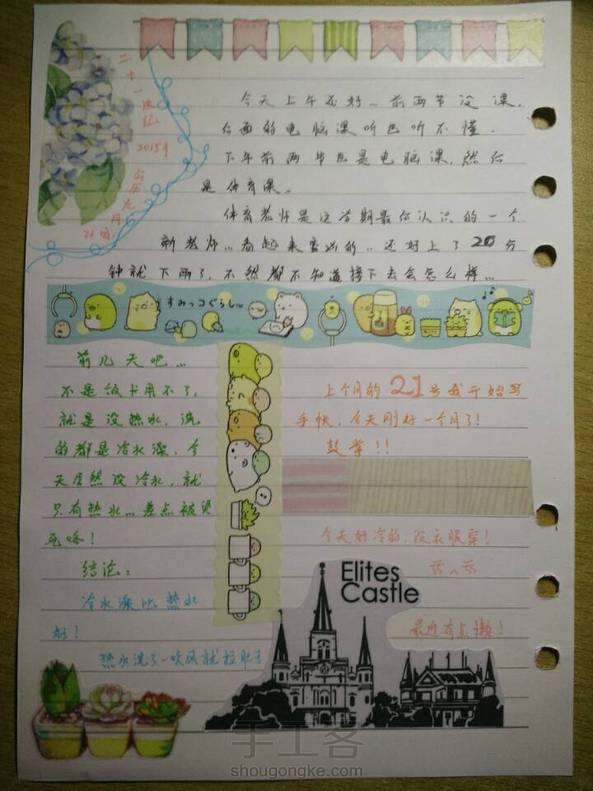 二十一
2015年
九月
21日
今天上午还好…前两节没课，
后面的电脑课听也听不懂。
下午前两节也是电脑课，然后
是体育课。
体育老师是这学期最后认识的一个
新老师…看起来蛮凶的…还好上了20分
钟就下雨了，不然都不知道接下去会怎么样…
すみっコぐらし
前几天吧…
不是饭卡用不了，
就是没热水，洗
的都是冷水澡，今
天居然没冷水，就
只有热水…差点被烫
死咯！
结论：
冷水澡比热水
好！
热水洗了一吹风就拉肚子
上个月的21号我开始写
手帐，今天刚好一个月了！
鼓掌！！
今天好冷的，没衣服穿！
Elites
Castle
手工客
shougongke.com